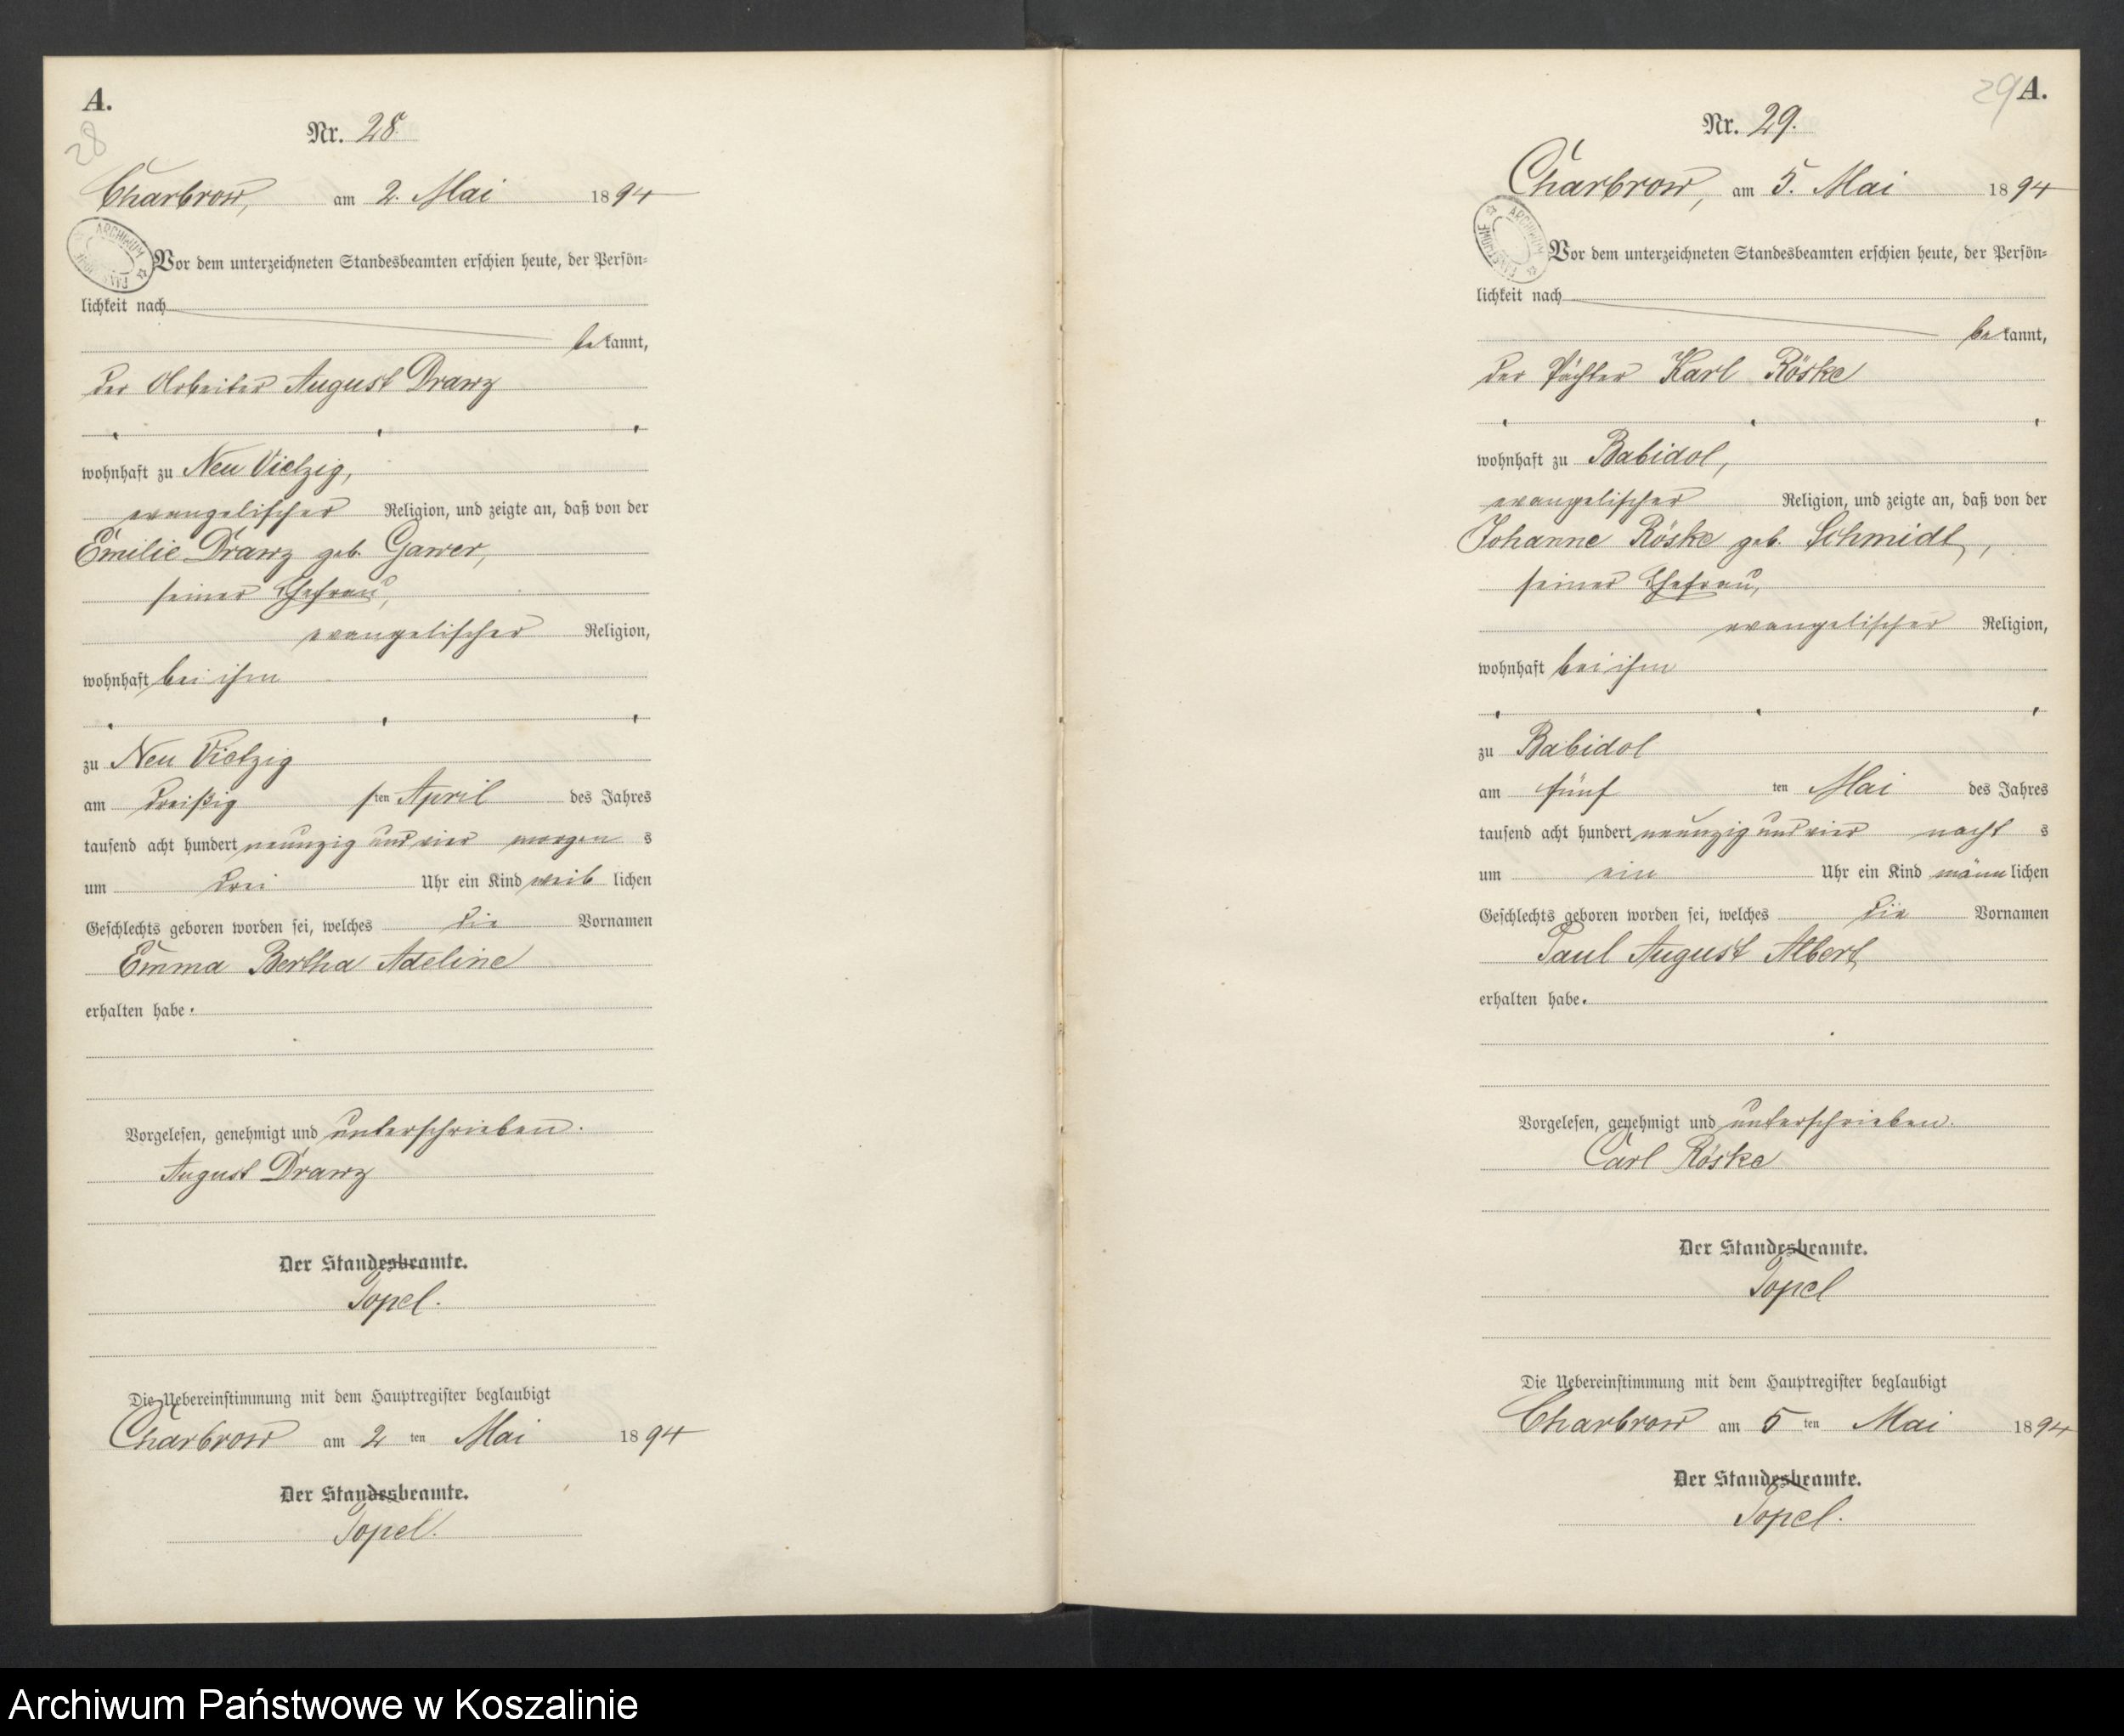 A.
28
Nr. 28.
Charbrow, am 2. Mai 1894
ARCHIWUM
Vor dem unterzeichneten Standesbeamten erschien heute, der Persön-
lichkeit nach
bekannt,
der Arbeiter August Drawz
wohnhaft zu Neu Vietzig,
evangelischer Religion, und zeigte an, daß von der
Emilie Drawz geb. Gawer,
seiner Ehefrau,
evangelischer Religion,
wohnhaft bei ihm
zu Neu Vietzig
am dreißigsten April des Jahres
tausend acht hundert neunzig und vier morgens
um drei Uhr ein Kind weiblichen
Geschlechts geboren worden sei, welches die Vornamen
Emma Bertha Adeline
erhalten habe.
Vorgelesen, genehmigt und unterschrieben.
August Drawz
Der Standesbeamte.
Topel.
Die Uebereinstimmung mit dem Hauptregister beglaubigt
Charbrow am 2ten Mai 1894
Der Standesbeamte.
Topel.
29 A.
Nr. 29.
Charbrow, am 5. Mai 1894
ARCHIWUM
Vor dem unterzeichneten Standesbeamten erschien heute, der Persön-
lichkeit nach
bekannt,
der Pächter Karl Röske
wohnhaft zu Babidol,
evangelischer Religion, und zeigte an, daß von der
Johanne Röske geb. Schmidt,
seiner Ehefrau,
evangelischer Religion,
wohnhaft bei ihm
zu Babidol
am fünften Mai des Jahres
tausend acht hundert neunzig und vier nachts
um ein Uhr ein Kind männlichen
Geschlechts geboren worden sei, welches die Vornamen
Paul August Albert
erhalten habe.
Vorgelesen, genehmigt und unterschrieben.
Carl Röske
Der Standesbeamte.
Topel
Die Uebereinstimmung mit dem Hauptregister beglaubigt
Charbrow am 5ten Mai 1894
Der Standesbeamte.
Topel.
Archiwum Państwowe w Koszalinie